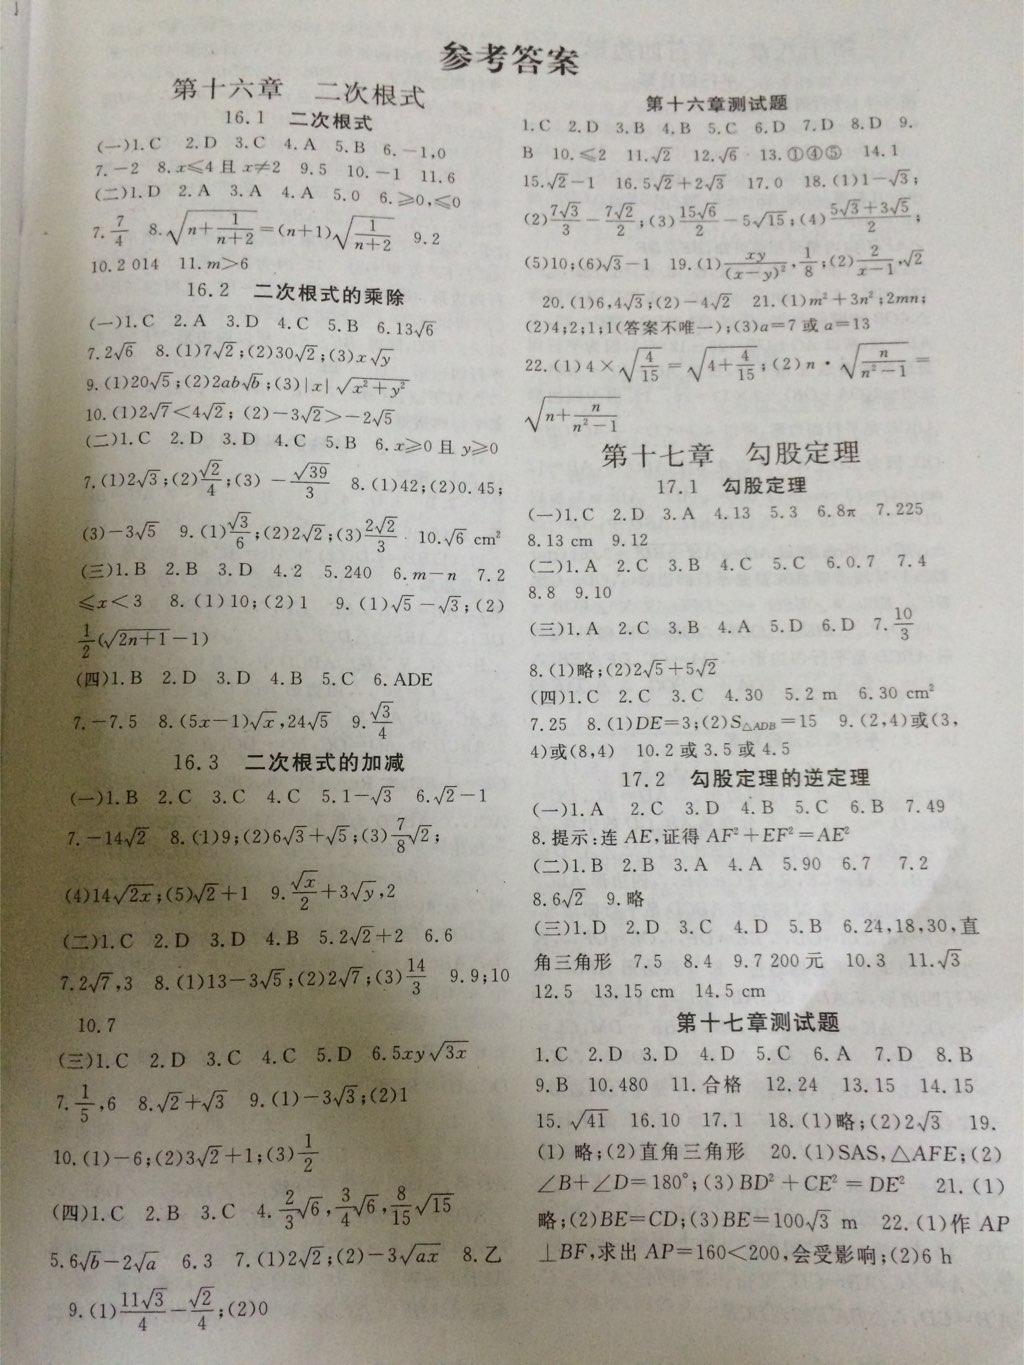 参考答案
第十六章 二次根式
16.1 二次根式
(一)1.C 2.D 3.C 4.A 5.B 6.-1,0
7.-2 8.x≤4且x≠2 9.5 10.-1 11.6
(二)1.D 2.A 3.A 4.A 5.0 6.≥0,≤0
7.7/4 8.√(n+1/(n+2))=(n+1)√(1/(n+2)) 9.2
10.2 014 11.m>6
16.2 二次根式的乘除
(一)1.C 2.A 3.D 4.C 5.B 6.13√6
7.2√6 8.(1)7√2;(2)30√2;(3)x√y
9.(1)20√5;(2)2ab√b;(3)|x|√(x²+y²)
10.(1)2√7<4√2; (2)-3√2>-2√5
(二)1.C 2.D 3.D 4.C 5.B 6.x≥0且y≥0
7.(1)2√3;(2)√2/4;(3) -√39/3 8.(1)42;(2)0.45;
(3)-3√5 9.(1)√3/6;(2)2√2;(3)2√2/3 10.√6 cm²
(三)1.B 2.B 3.D 4.2 5.240 6.m-n 7.2
≤x<3 8.(1)10;(2)1 9.(1)√5-√3;(2)
1/2(√(2n+1)-1)
(四)1.B 2.D 3.D 4.B 5.C 6.ADE
7.-7.5 8.(5x-1)√x,24√5 9.√3/4
16.3 二次根式的加减
(一)1.B 2.C 3.C 4.C 5.1-√3 6.√2-1
7.-14√2 8.(1)9;(2)6√3+√5;(3)7/8√2;
(4)14√(2x);(5)√2+1 9.√x/2+3√y,2
(二)1.C 2.D 3.D 4.B 5.2√2+2 6.6
7.2√7,3 8.(1)13-3√5;(2)2√7;(3)14/3 9.9;10
10.7
(三)1.C 2.D 3.C 4.C 5.D 6.5xy√(3x)
7.1/5,6 8.√2+√3 9.(1)-3√3;(2)1
10.(1)-6;(2)3√2+1;(3)1/2
(四)1.C 2.B 3.C 4.2/3√6,3/4√6,8/15√15
5.6√b-2√a 6.3 7.(1)2√2;(2)-3√(ax) 8.乙
9.(1)11√3/4-√2/4;(2)0
第十六章测试题
1.C 2.D 3.B 4.B 5.C 6.D 7.D 8.D 9.
B 10.≤2 11.√2 12.√6 13.①④⑤ 14.1
15.√2-1 16.5√2+2√3 17.0 18.(1)1-√3;
(2)7√3/3-7√2/2;(3)15√6/2-5√15;(4)(5√3+3√5)/2;
(5)10;(6)√3-1 19.(1)xy/(x-y)²,1/8;(2)2/(x-1),√2
20.(1)6,4√3;(2)-4√2 21.(1)m²+3n²;2mn;
(2)4;2;1;1(答案不唯一);(3)a=7或a=13
22.(1)4×√(4/15)=√(4+4/15);(2)n·√(n/(n²-1))=
√(n+n/(n²-1))
第十七章 勾股定理
17.1 勾股定理
(一)1.C 2.D 3.A 4.13 5.3 6.8π 7.225
8.13 cm 9.12
(二)1.A 2.C 3.B 4.C 5.C 6.0.7 7.4
8.8 9.10
(三)1.A 2.C 3.B 4.A 5.D 6.D 7.10/3
8.(1)略;(2)2√5+5√2
(四)1.C 2.C 3.C 4.30 5.2 m 6.30 cm²
7.25 8.(1)DE=3;(2)S△ADB=15 9.(2,4)或(3,
4)或(8,4) 10.2或3.5或4.5
17.2 勾股定理的逆定理
(一)1.A 2.C 3.D 4.B 5.C 6.B 7.49
8.提示:连AE,证得AF²+EF²=AE²
(二)1.B 2.B 3.A 4.A 5.90 6.7 7.2
8.6√2 9.略
(三)1.D 2.D 3.C 4.D 5.B 6.24,18,30,直
角三角形 7.5 8.4 9.7 200元 10.3 11.√3
12.5 13.15 cm 14.5 cm
第十七章测试题
1.C 2.D 3.D 4.D 5.C 6.A 7.D 8.B
9.B 10.480 11.合格 12.24 13.15 14.15
15.√41 16.10 17.1 18.(1)略;(2)2√3 19.
(1)略;(2)直角三角形 20.(1)SAS,△AFE;(2)
∠B+∠D=180°;(3)BD²+CE²=DE² 21.(1)
略;(2)BE=CD;(3)BE=100√3 m 22.(1)作AP
⊥BF,求出AP=160<200,会受影响;(2)6 h